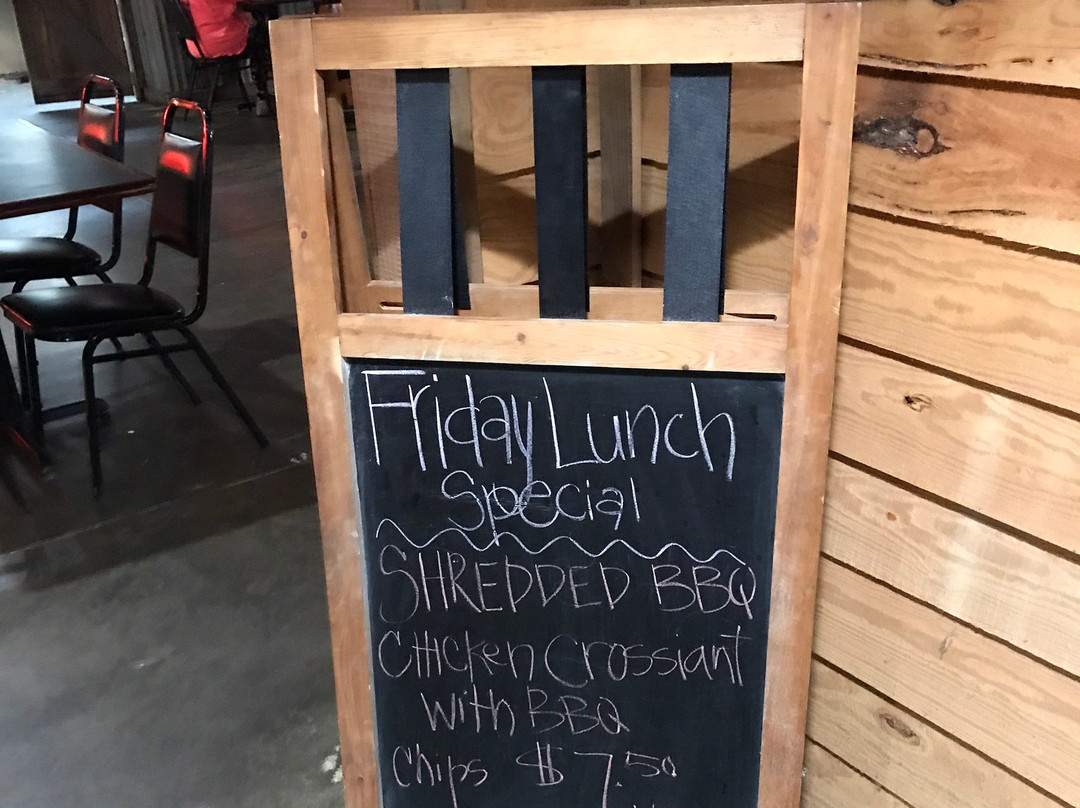 Friday Lunch
Special
SHREDDED BBQ
CHicken Crossiant
with BBQ
chips $7.50